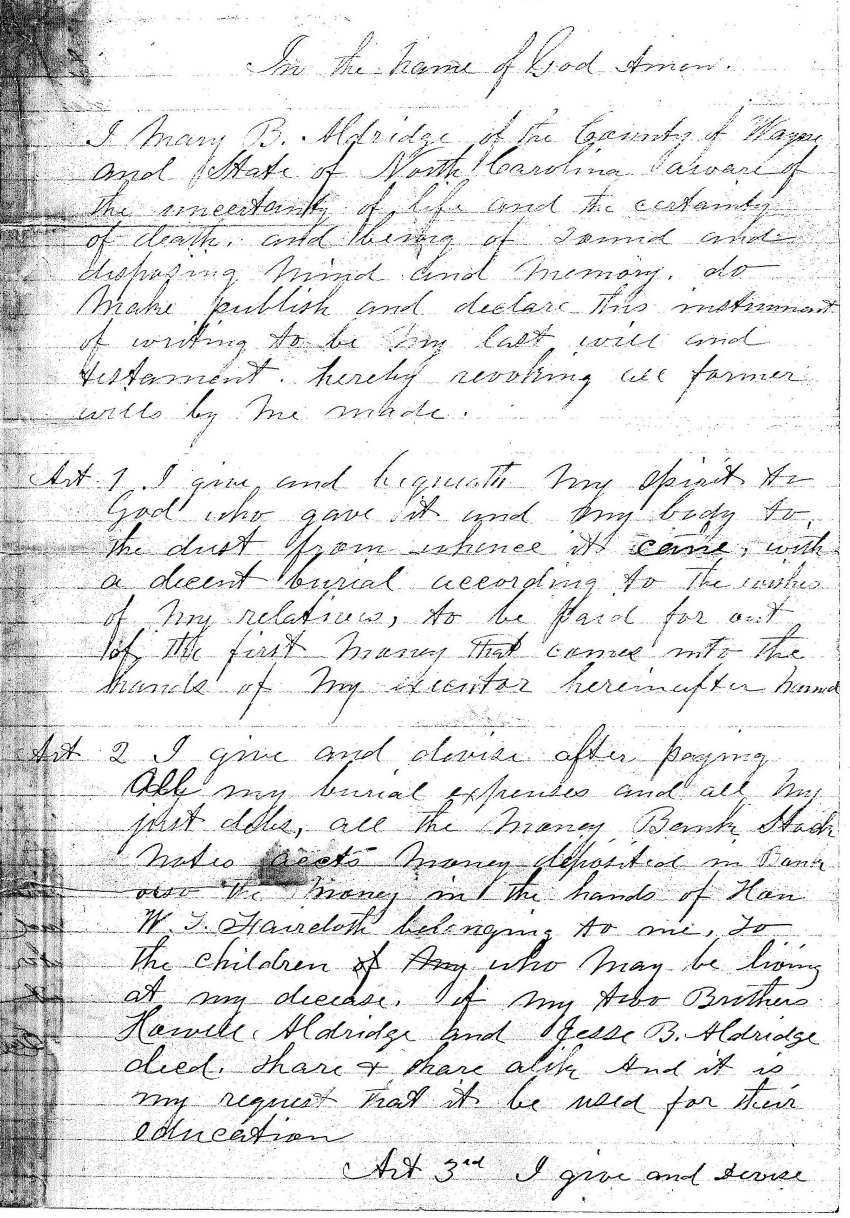 In the name of God Amen.
I Mary B. Aldridge of the County of Wayne
and State of North Carolina aware of
the uncertainty of life and the certainty
of death, and being of sound and
disposing mind and memory, do
make publish and declare this instrument
of writing to be my last will and
testament. hereby revoking all former
wills by me made.
Art 1 I give and bequeath my spirit to
God who gave it and my body to
the dust from whence it came, with
a decent burial according to the wishes
of my relatives, to be paid for out
of the first money that comes into the
hands of my executor hereinafter named
Art 2 I give and devise after paying
All my burial expenses and all my
just debts, all the money Bank Stock
notes accts money deposited in Bank
also the money in the hands of Hon
W. T. Faircloth belonging to me, to
the children of my who may be living
at my decease. of my two Brothers
Howell Aldridge and Jesse B. Aldridge
decd. share & share alike And it is
my request that it be used for their
education
Art 3rd I give and devise